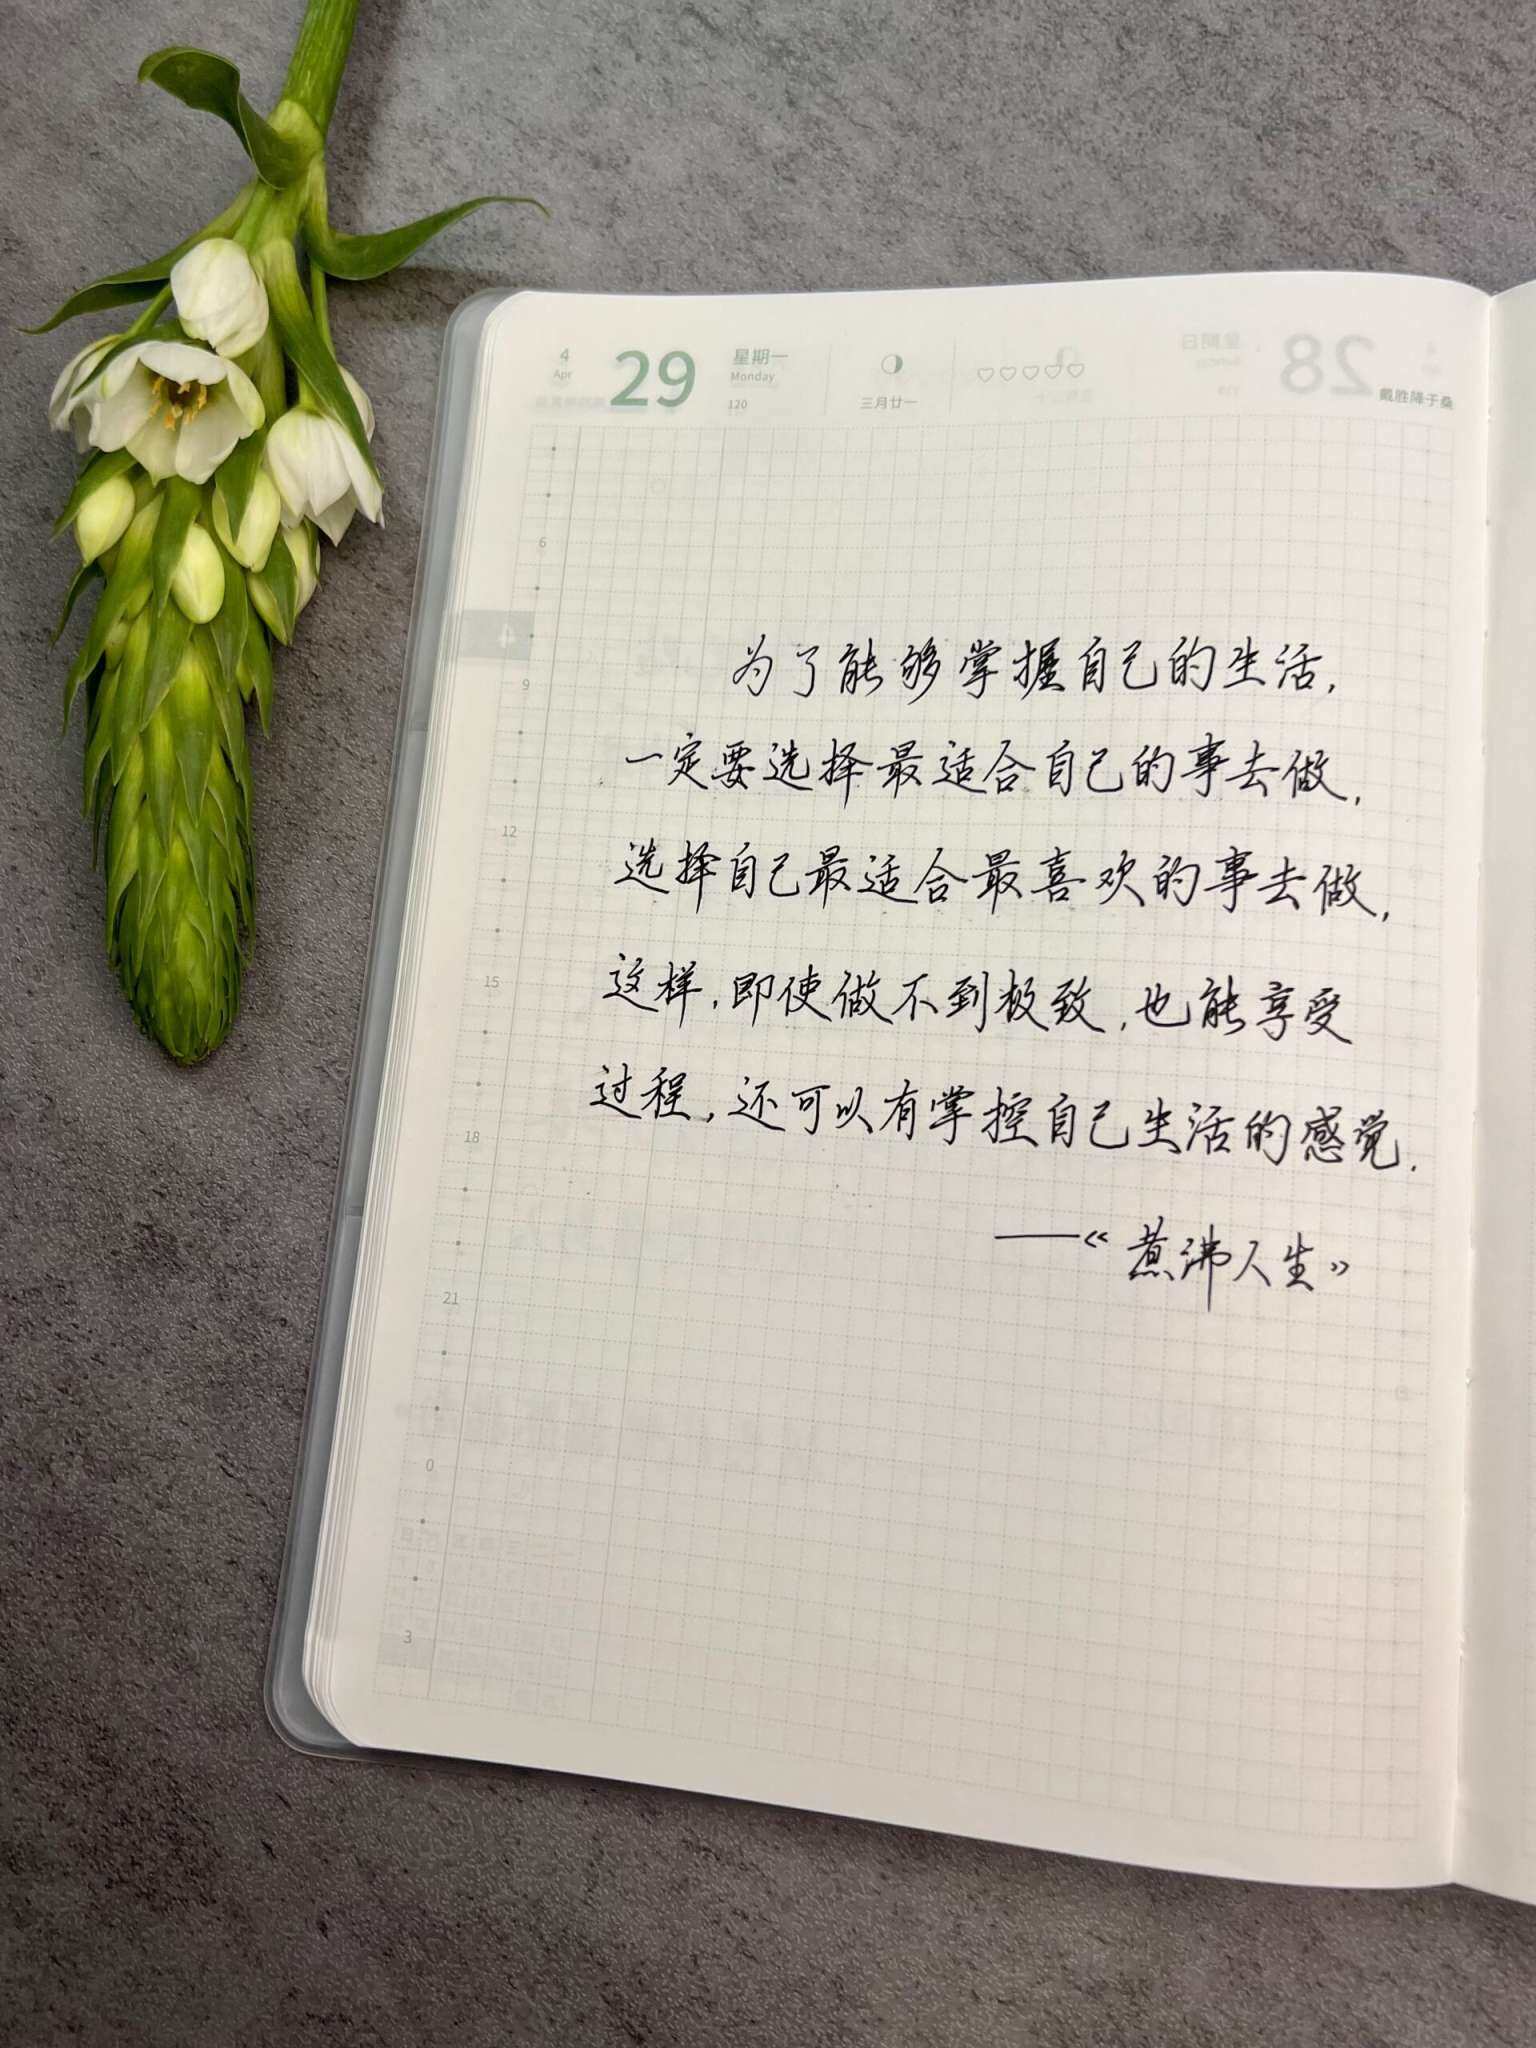 4
Apr
29
星期一
Monday
120
三月廿一
戴胜降于桑
4
6
9
12
15
18
21
0
3
为了能够掌握自己的生活,
一定要选择最适合自己的事去做,
选择自己最适合最喜欢的事去做,
这样,即使做不到极致,也能享受
过程,还可以有掌控自己生活的感觉.
——《煮沸人生》